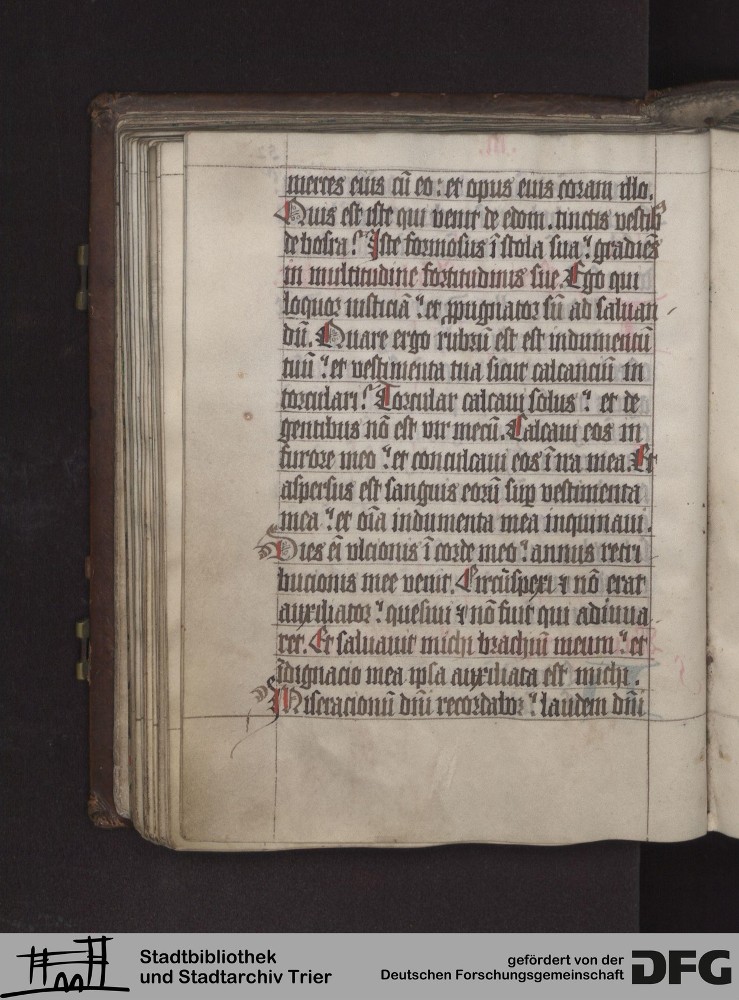 merces eius cū eo : et opus eius coram illo .
Quis est iste qui venit de edom . tinctis vestib
de bosra ? Iste formosus ī stola sua : gradiēs
in multitudine fortitudinis sue . Ego qui
loquor iusticiā : et ꝓpugnator sū ad saluan
dū . Quare ergo rubrū est est indumentū
tuū : et vestimenta tua sicut calcanciū in
torculari ? Torcular calcaui solus : et de
gentibus nō est vir mecū . Calcaui eos in
furore meo : et conculcaui eos ī ira mea . Et
aspersus est sanguis eorū sup vestimenta
mea : et oīa indumenta mea inquinaui .
Dies eī vlcionis ī corde meo : annus retri
bucionis mee venit . Circūspexi ⁊ nō erat
auxiliator : quesiui ⁊ nō fuit qui adiuua
ret . Et saluauit michi brachiū meum : et
īdignacio mea ipsa auxiliata est michi .
Miseracionū dn̄i recordabor : laudem dn̄i
Stadtbibliothek
und Stadtarchiv Trier
gefördert von der
Deutschen Forschungsgemeinschaft
DFG